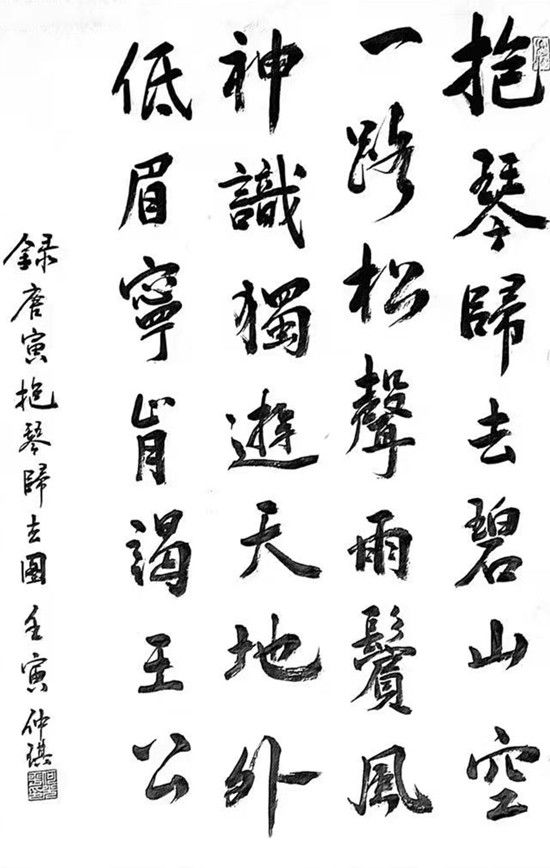 抱琴歸去碧山空
一路松聲雨鬢風
神識獨遊天地外
低眉寧肯謁王公
錄唐寅抱琴歸去圖 壬寅 仲琪